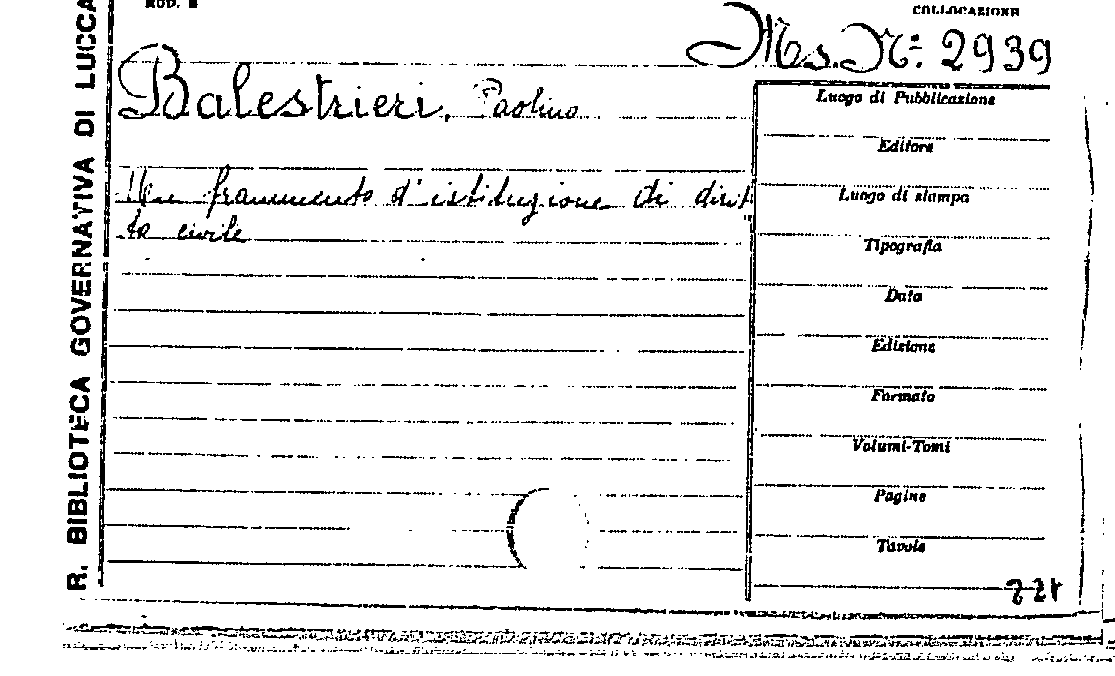 MOD. B
COLLOCAZIONE
Ms. N.º 2939
R. BIBLIOTECA GOVERNATIVA DI LUCCA
Balestrieri, Paolino
Un frammento d'istituzione di dirit
to civile
Luogo di Pubblicazione
Editore
Luogo di stampa
Tipografia
Data
Edizione
Formato
Volumi-Tomi
Pagine
Tavole